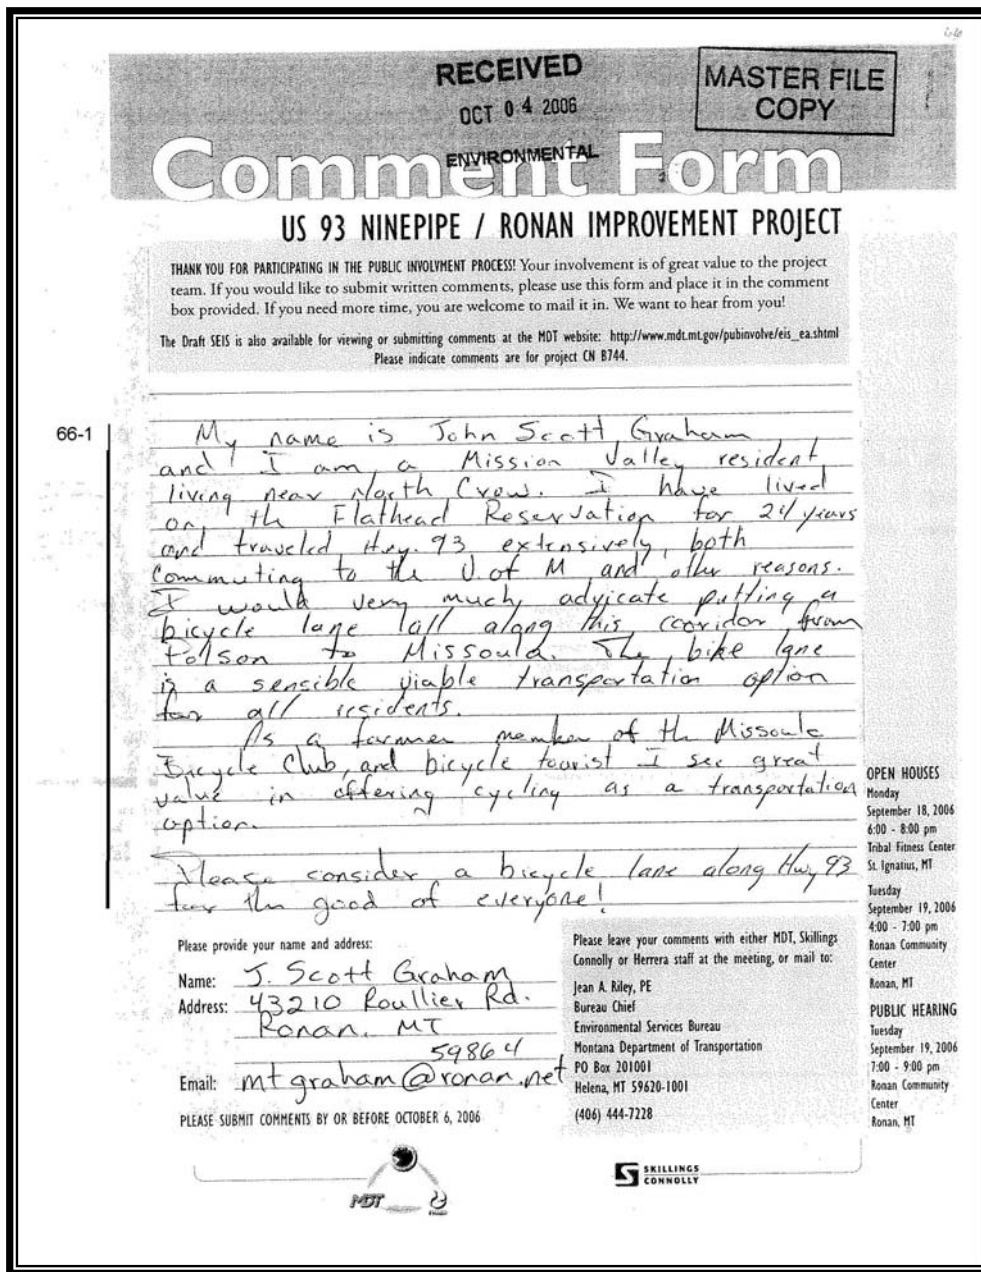 66
RECEIVED
OCT 04 2006
ENVIRONMENTAL
MASTER FILE
COPY
Comment Form
US 93 NINEPIPE / RONAN IMPROVEMENT PROJECT
THANK YOU FOR PARTICIPATING IN THE PUBLIC INVOLVMENT PROCESS! Your involvement is of great value to the project
team. If you would like to submit written comments, please use this form and place it in the comment
box provided. If you need more time, you are welcome to mail it in. We want to hear from you!
The Draft SEIS is also available for viewing or submitting comments at the MDT website: http://www.mdt.mt.gov/pubinvolve/eis_ea.shtml
Please indicate comments are for project CN B744.
66-1
My name is John Scott Graham
and I am a Mission Valley resident
living near North Crow. I have lived
on the Flathead Reservation for years
and traveled Hwy. 93 extensively, both
commuting to the U. of M and other reasons.
I would very much advicate putting a
bicycle lane all along this cooridor from
Polson to Missoula. The bike lane
is a sensible viable transportation option
for all residents.
As a former member of the Missoula
Bicycle Club, and bicycle tourist I see great
value in offering cycling as a transportation
option.
Please consider a bicycle lane along Hwy 93
for the good of everyone!
Please provide your name and address:
Name: J. Scott Graham
Address: 43210 Roullier Rd.
Ronan, MT
59864
Email: mtgraham@ronan.net
PLEASE SUBMIT COMMENTS BY OR BEFORE OCTOBER 6, 2006
Please leave your comments with either MDT, Skillings
Connolly or Herrera staff at the meeting, or mail to:
Jean A. Riley, PE
Bureau Chief
Environmental Services Bureau
Montana Department of Transportation
PO Box 201001
Helena, MT 59620-1001
(406) 444-7228
OPEN HOUSES
Monday
September 18, 2006
6:00 - 8:00 pm
Tribal Fitness Center
St. Ignatius, MT
Tuesday
September 19, 2006
4:00 - 7:00 pm
Ronan Community
Center
Ronan, MT
PUBLIC HEARING
Tuesday
September 19, 2006
7:00 - 9:00 pm
Ronan Community
Center
Ronan, MT
MDT
SKILLINGS
CONNOLLY